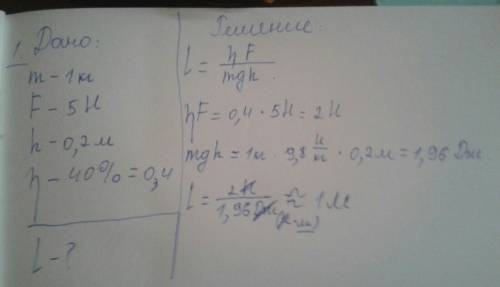 1. Дано:
m - 1 кг
F - 5 Н
h - 0,2 м
η - 40% = 0,4
l - ?
Решение:
l = ηF / mgh.
ηF = 0,4 · 5Н = 2 Н
mgh = 1кг · 9,8 Н/кг · 0,2м = 1,96 Дж.
l = 2Н / 1,96 Дж ≈ 1м
(Н·м)